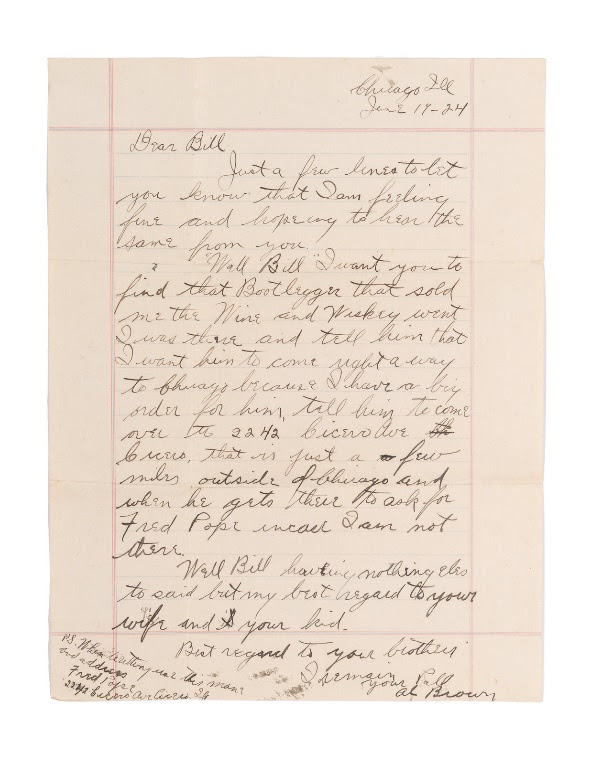 Chicago Ill
June 19-24
Dear Bill
Just a few lines to let
you know that I am feeling
fine and hopeing to hear the
same from you
"Well Bill" I want you to
find that Bootlegger that sold
me the Wine and Wiskey went
I was there and tell him that
I want him to come right a way
to Chicago because I have a big
order for him, tell him to come
over to 2242 Cicero Ave
Cicero, that is just a few
miles outside of Chicago and
when he gets their to ask for
Fred Pope incase I am not
there.
Well Bill haveing nothing eles
to said but my best regard to your
wife and your kid.
But regard to your brothers
I remain
your Pall
Al Brown
P.S. When writting use this name
and address
Fred Pope
2242 Cicero Ave Cicero Ill